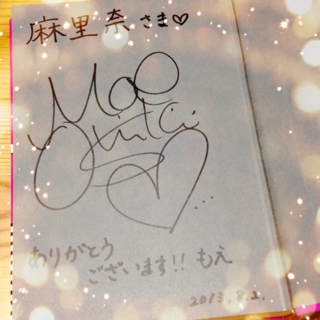 麻里奈さま♡
Moe
ありがとう
ございます!! もえ
2013.8.2.